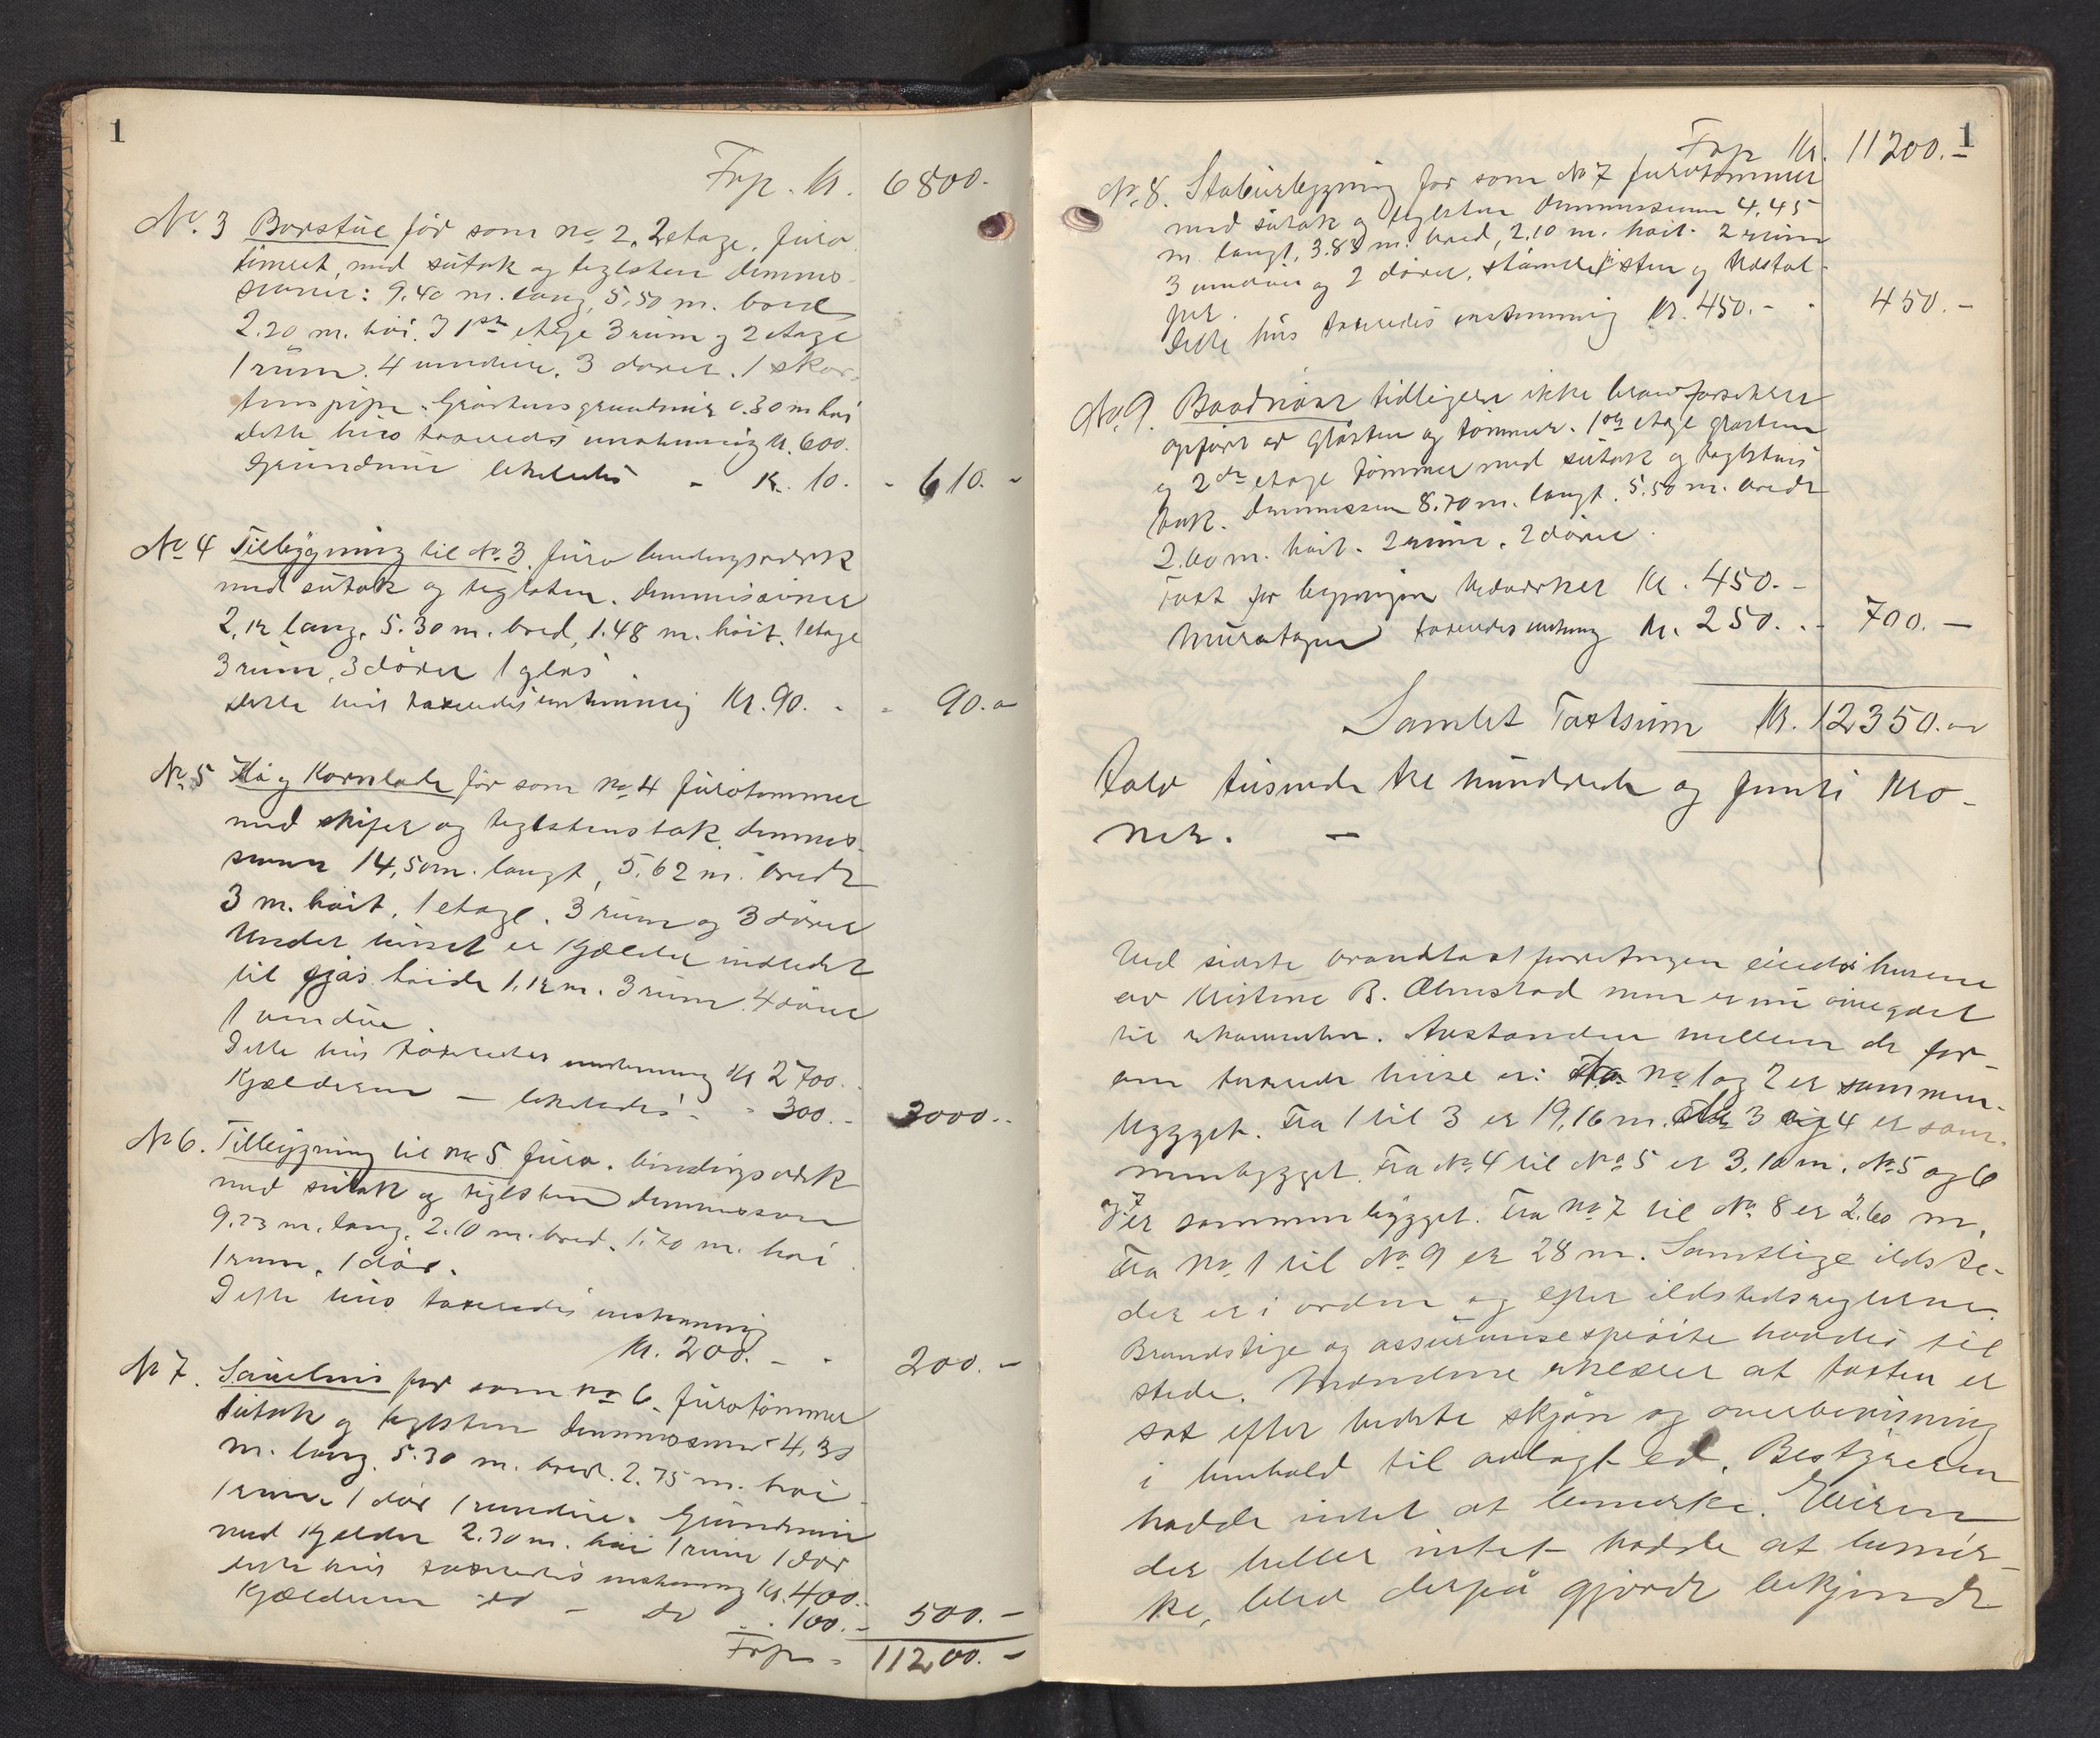 1
Frp. Kr. 6800.-
No. 3 Borstue før som no 2, 2 etage, furo
timret, med sutak og teglsten dimmis
sioner: 9.40 m. lang, 5.50 m. bred
2.20 m. høi. I 1ste etage 3 rum og 2 etage
1 rum. 4 vinduer. 3 dører. 1 skor-
stenspipe. Gråstensgrundmur 0.30 m høi
Dette hus taxeredes enstemmig kr. 600.
Grundmur likeledes - K. 10. - 610. -
No 4 Tilbygning til No. 3. furo bindingsværk
med sutak og teglsten. Dimmisioner
2.12 lang. 5.30 m. bred, 1.48 m. høit. 1 etage
3 rum, 3 dører 1 glas
Dette hus taxeredes enstemmig Kr. 90. - - 90. -
No. 5 Hø og Kornlade før som no 4 furotømmer
med skifer og teglstenstak. dimmis-
sioner 14,50 m. langt, 5.62 m. bredt
3 m. høit. 1 etage. 3 rum og 3 dører
Under huset er kjælder indredet
til fjøs høide 1.12 m. 3 rum 4 dører
1 vindue.
Dette hus taxeredes enstemmig Kr 2700.
Kjælderen - likeledes - - 300. - 3000. -
No 6. Tilbygning til no 5 furo. bindingsværk
med sutak og teglsten dimmissioner
9.23 m. lang. 2.10 m. bred. 1.70 m. høi
1 rum. 1 dør.
Dette hus taxeredes enstemmig
Kr. 200. - - 200. -
No 7. Sauehus før som no 6. furotømmer
sutak og teglsten dimmissioner 4.30
m. lang. 5.30 m. bred. 2.75 m. høi
1 rum. 1 dør 1 vindue. Grundmur
med kjelder 2.30 m. høi 1 rum 1 dør
dette hus taxeredes enstemmig Kr. 400.
Kjælderen do - do - . 100. - 500. -
Frp - 11200. -
1
Frp Kr. 11200. -
No. 8. Stabursbygning før som No 7 furotømmer
med sutak og teglsten dimmissioner 4.45
m. langt, 3.83 m. bred, 2.10 m. høit. 2 rum
3 vinduer og 2 dører. sten og
per.
Dette hus taxeredes enstemmig Kr. 450. - - 450. -
No. 9. Baadnøst tidligere ikke brandforsikret
opført av gråsten og tømmer. 1ste etage gråsten
og 2den etage tømmer med sutak og teglstens
tak. Dimmission 8.70 m. langt. 5.50 m. bredt
2.60 m. høit. 2 rum. 2 dører.
Taxt for bygningen Kr. 450. -
Muretagen taxeredes enstemmig Kr. 250. - - 700. -
Samlet Taxtsum Kr. 12350. -
Tolv tusinde tre hundrede og femti Kro-
ner. -
Ved sidste brandtaxtforretningen eiedes husene
av Kristine B. Olmstad men er nu overgået
til rekvirenten. Avstanden mellem de for-
an taxerede huse er: No 1 og 2 er sammen-
bygget. Fra 1 til 3 er 19,16 m. 3 og 4 er sam-
menbygget. Fra No. 4 til No 5 er 3.10 m. No. 5 og 6
og 7 er sammenbygget. Fra No 7 til No. 8 er 2.60 m.
Fra No. 1 til No. 9 er 28 m. Samtlige ildste-
der er i orden og efter ildstedsreglerne.
Brandstige og assuransesprøite havdes til
stede. Mændene erklærer at taxten er
sat efter bedste skjøn og overbevisning
i henhold til avlagt ed. Bestyreren
hadde intet at bemerke. Eieren
der heller intet hadde at bemer-
ke, blev derpå gjordt bekjendt